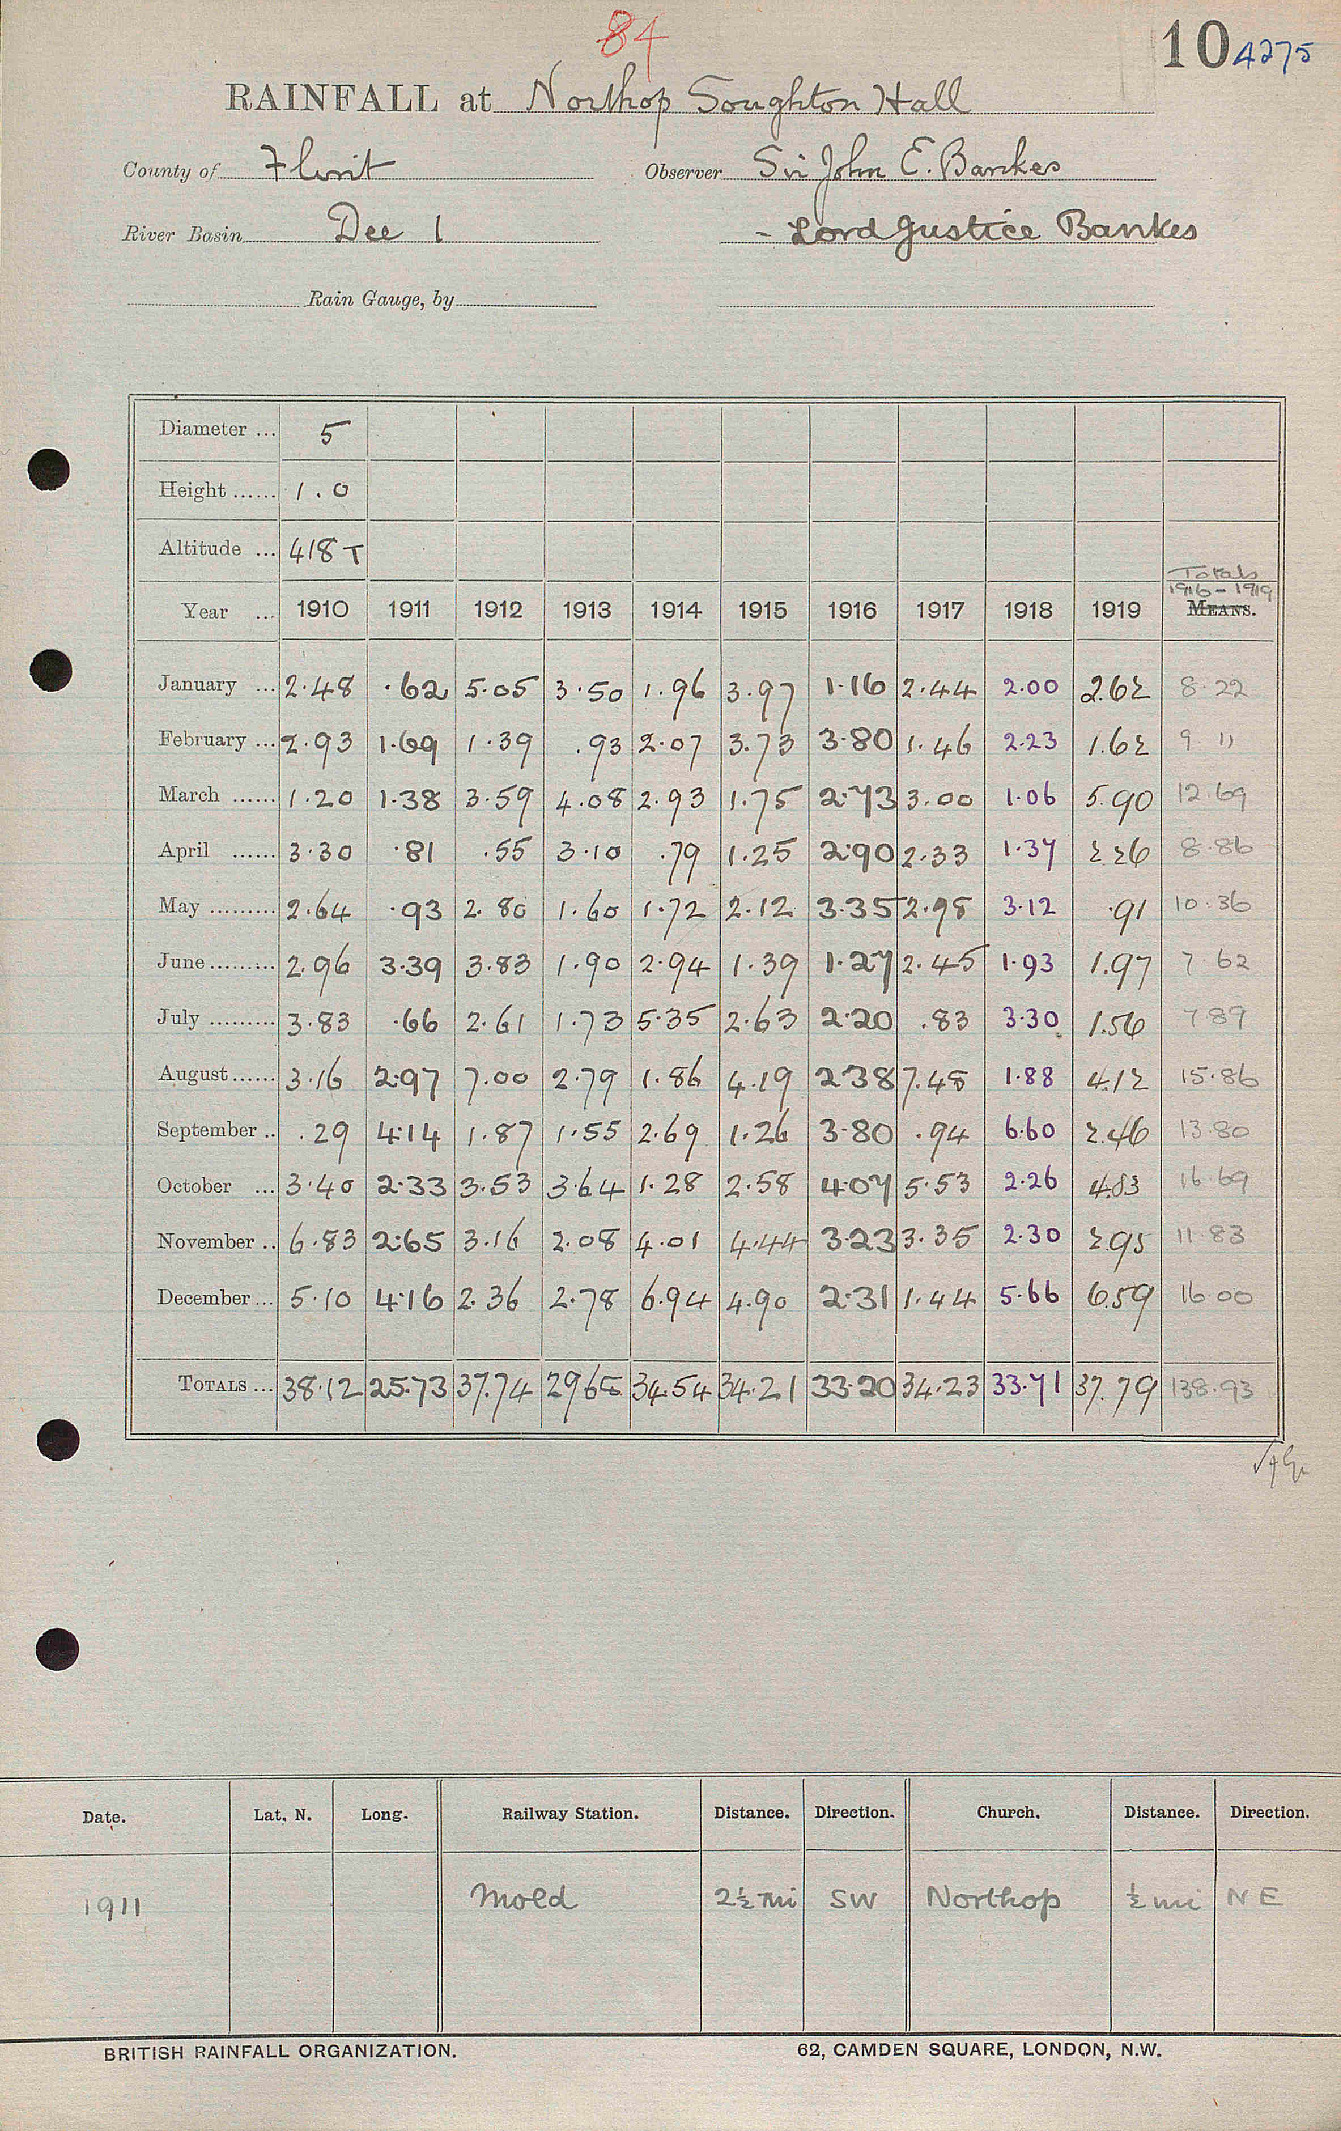 84
10 4275
RAINFALL at Northop Soughton Hall
County of Flint Observer Sir John E. Bankes
River Basin Dee 1 - Lord Justice Bankes
Rain Gauge, by
Diameter ... 5
Height ...... 1.0
Altitude ... 418 T
Totals 1916-1919
Year ... 1910 1911 1912 1913 1914 1915 1916 1917 1918 1919 MEANS.
January ... 2.48 .62 5.05 3.50 1.96 3.97 1.16 2.44 2.00 2.62 8.22
February ... 2.93 1.69 1.39 .93 2.07 3.73 3.80 1.46 2.23 1.62 9.11
March ...... 1.20 1.38 3.59 4.08 2.93 1.75 2.73 3.00 1.06 5.90 12.69
April ...... 3.30 .81 .55 3.10 .79 1.25 2.90 2.33 1.37 2.26 8.86
May ......... 2.64 .93 2.80 1.60 1.72 2.12 3.35 2.98 3.12 .91 10.36
June ......... 2.96 3.39 3.83 1.90 2.94 1.39 1.27 2.45 1.93 1.97 7.62
July ......... 3.83 .66 2.61 1.73 5.35 2.63 2.20 .83 3.30 1.56 7.89
August ...... 3.16 2.97 7.00 2.79 1.86 4.19 2.38 7.48 1.88 4.12 15.86
September .. .29 4.14 1.87 1.55 2.69 1.26 3.80 .94 6.60 2.46 13.80
October ... 3.40 2.33 3.53 3.64 1.28 2.58 4.07 5.53 2.26 4.83 16.69
November .. 6.83 2.65 3.16 2.08 4.01 4.44 3.23 3.35 2.30 2.95 11.83
December ... 5.10 4.16 2.36 2.78 6.94 4.90 2.31 1.44 5.66 6.59 16.00
TOTALS ... 38.12 25.73 37.74 29.68 34.54 34.21 33.20 34.23 33.71 37.79 138.93
Date. Lat. N. Long. Railway Station. Distance. Direction. Church. Distance. Direction.
1911 Mold 2½ mi SW Northop ½ mi NE
BRITISH RAINFALL ORGANIZATION. 62, CAMDEN SQUARE, LONDON, N.W.